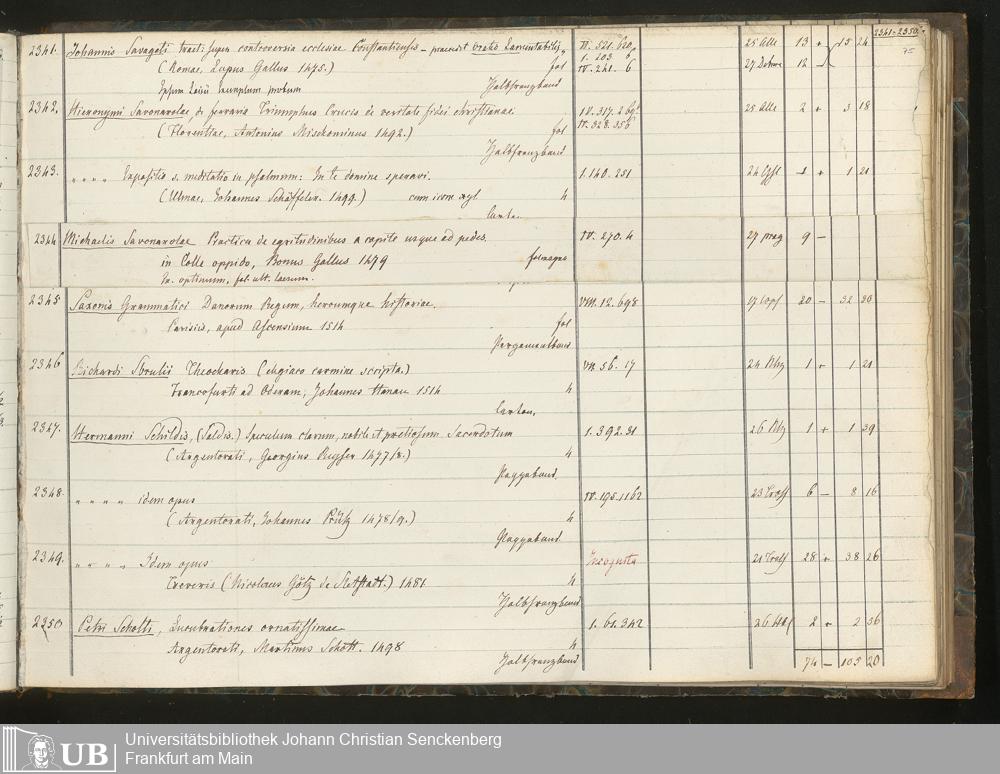 2341–2350.
75
2341. Johannis Savageti tract: super controversia ecclesiae Constantiensis – praecedit oratio lamentabilis, IV. 521. 620, 25 13 + 15 24
(Romae, Lupus Gallus 1475.) fol 1. 203 6
IV. 241. 6 27 12 –
exemplum Halbfranzband
2342. Hieronymi Savonarolae, de ferraria Triumphus Crucis de veritate fidei christianae. IV. 317. 25 2 + 3 18
(Florentiae, Antonius Misckominus 1492.) fol IV. 328. 356
Halbfranzband
2343. " " " " Expositio s. meditatio in psalmum: In te domine speravi. 1. 140. 251 24 1 + 1 21
(Ulmae, Johannes Schäffeler. 1499.) cum icon xyl 4
Carton.
2344 Michaelis Savonarolae Practica de egritudinibus a capite usque ad pedes. IV. 270. 4 27 prag 9 –
in Colle oppido, Bonus Gallus 1479 fol magno
Ex. optimum, fol. ult. laesum.
2345 Saxonis Grammatici Danorum Regum, heroumque historiae. VIII. 12. 698 20 – 32 20
Parisiis, apud Ascensium 1514 fol
Pergamentband
2346 Richardi Sbrulii Theocharis (elegiaco carmine scripta.) VII. 56. 17 24 1 + 1 21
Francofurti ad Oderam, Johannes Hanau 1514 4
Carton.
2347. Hermanni Schildis, (Saldis.) Speculum clarum, nobile et pretiosum Sacerdotum 1. 392. 31 26 1 + 1 39
(Argentorati, Georgius Ryser 1477/8.) 4
Pappband.
2348. " " " " idem opus IV. 195. 1162 23 6 – 8 16
(Argentorati, Johannes Prütz 1478/9.) 4
Pappband
2349. " " " " Idem opus Incognita 21 28 + 38 26
Treveris (Nicolaus Götz de Sletstadt.) 1481 4
Halbfranzband
2350 Petri Schotti, Lucubrationes ornatissimae 1. 61. 342 26 2 + 2 56
Argentorati, Martinus Schott. 1498 4
Halbfranzband 74 – 105 20
UB
Universitätsbibliothek Johann Christian Senckenberg
Frankfurt am Main